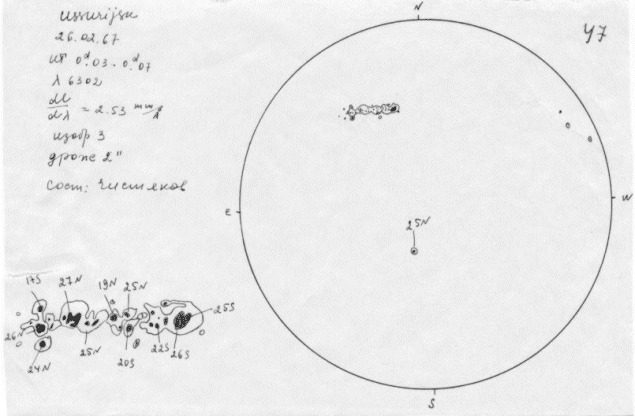 Ussurijsk
26.02.67
UT 0ᵈ.03 - 0ᵈ.07
λ 6302
dl/dλ = 2.53 mm/Å
изобр 3
дрож 2"
Сост: Чистяков
47
N
E
W
S
25N
17S
27N
19N
25N
25S
26N
24N
25N
20S
22S
26S